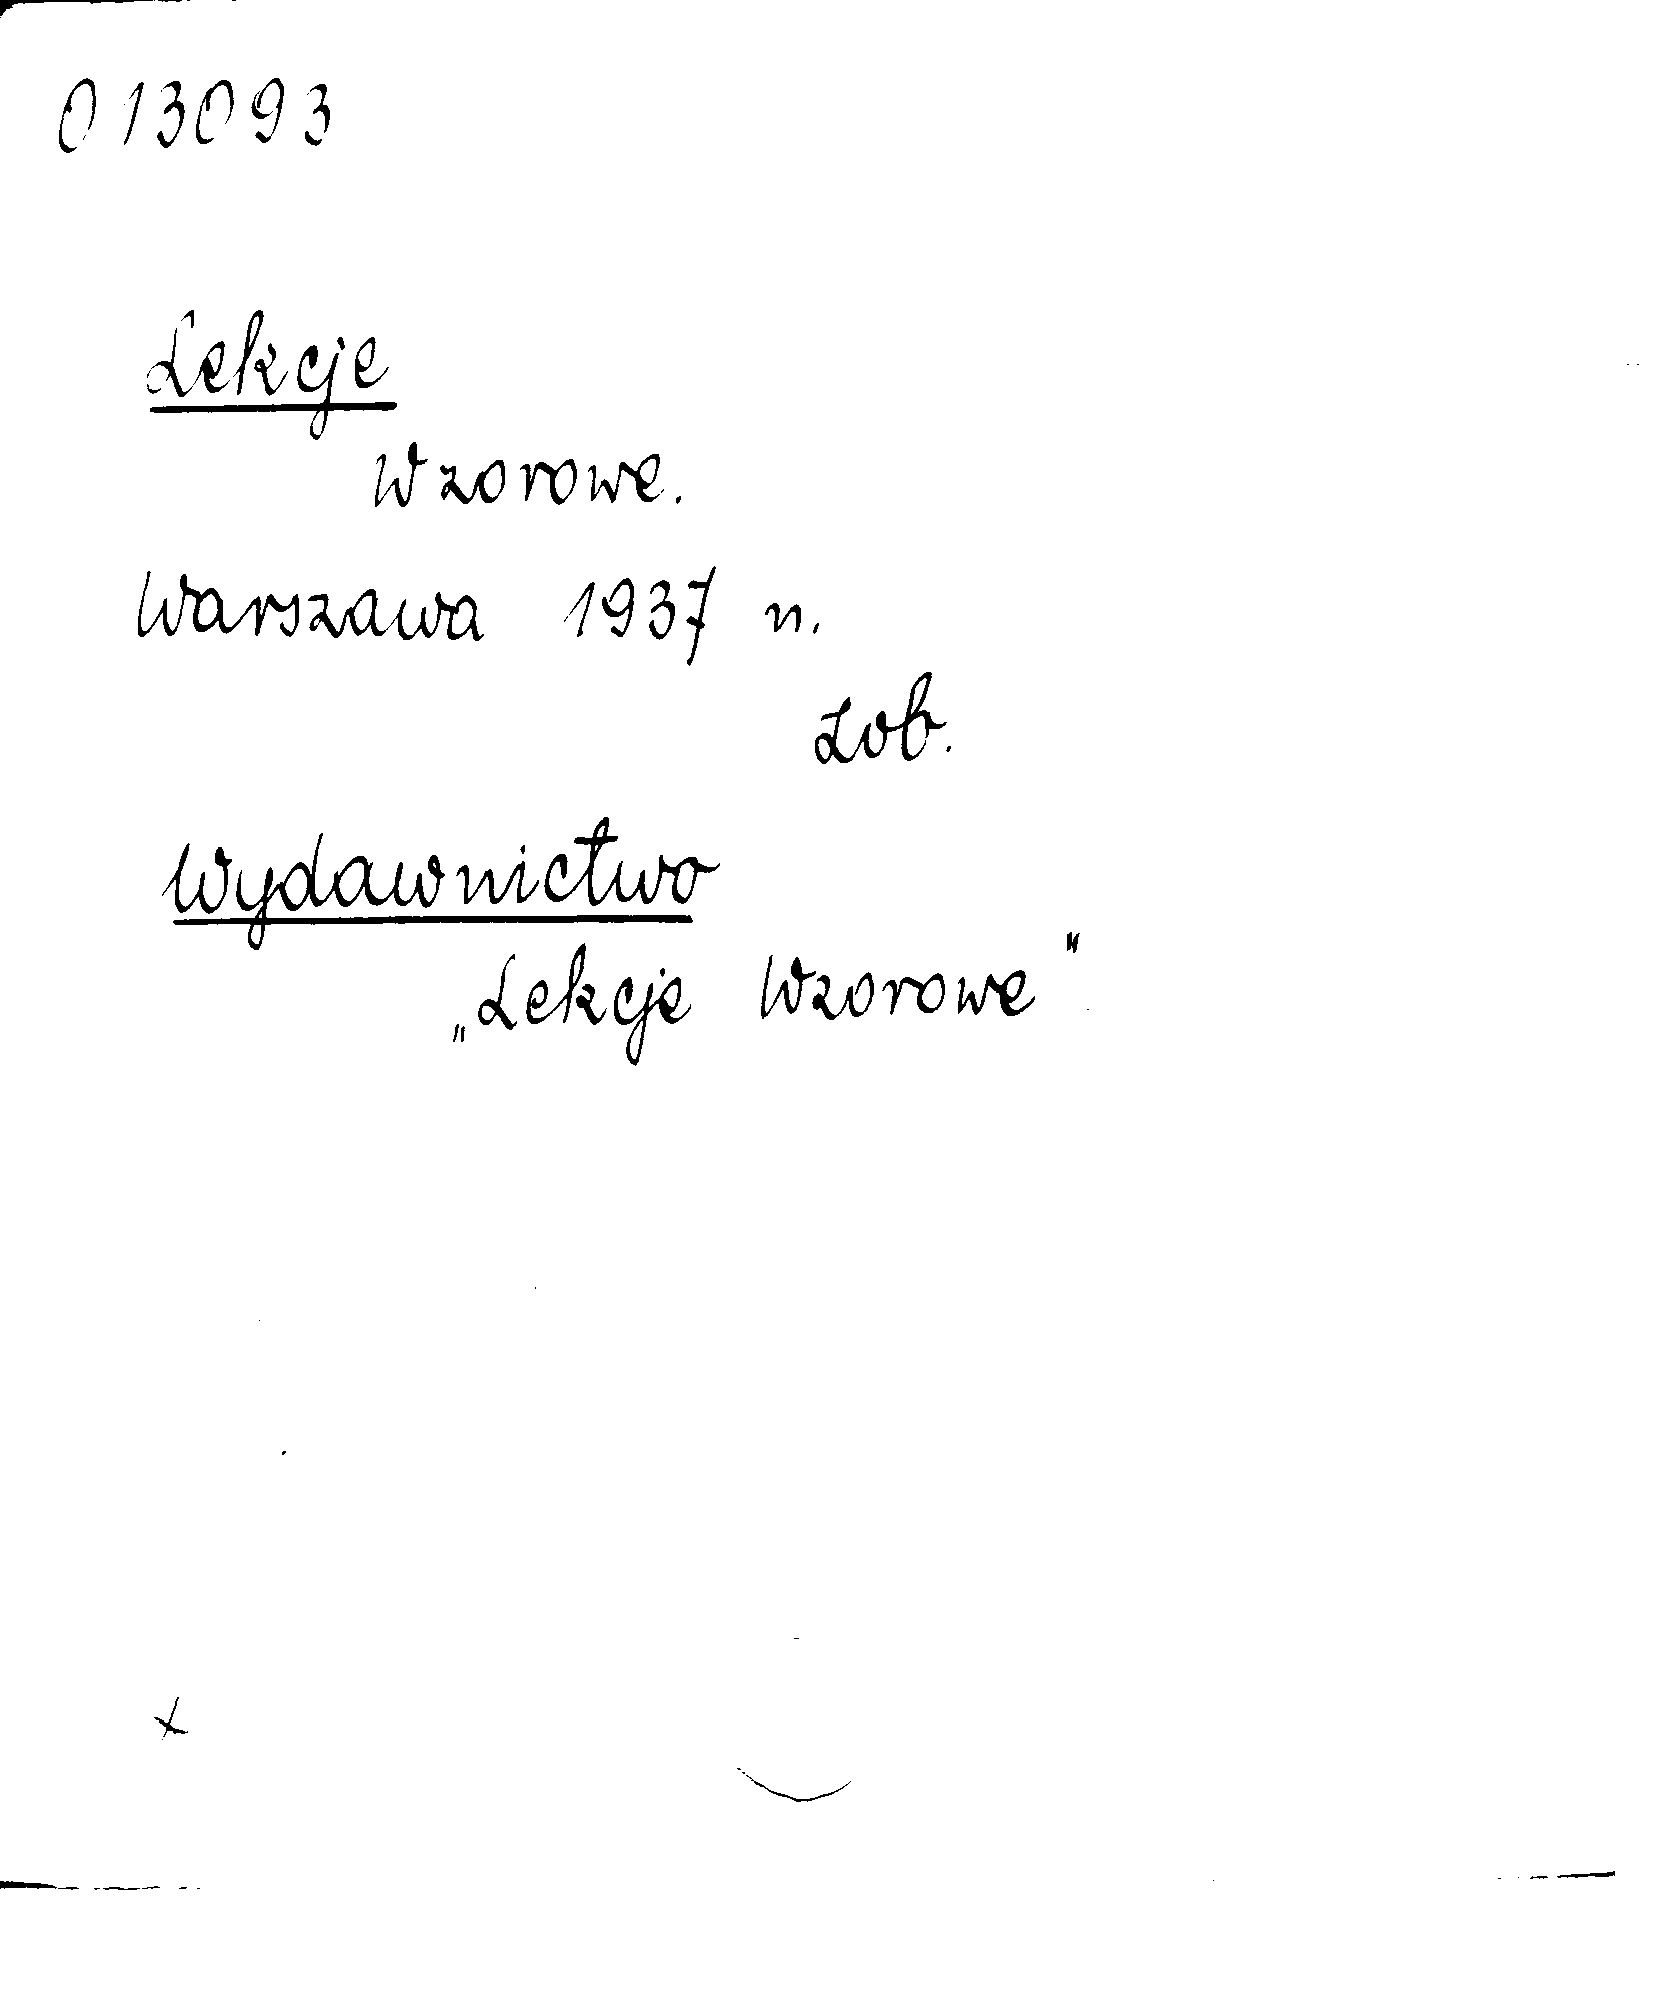 013093
Lekcje
Wzorowe.
Warszawa 1937 n.
Zob.
Wydawnictwo
„Lekcje Wzorowe"
x